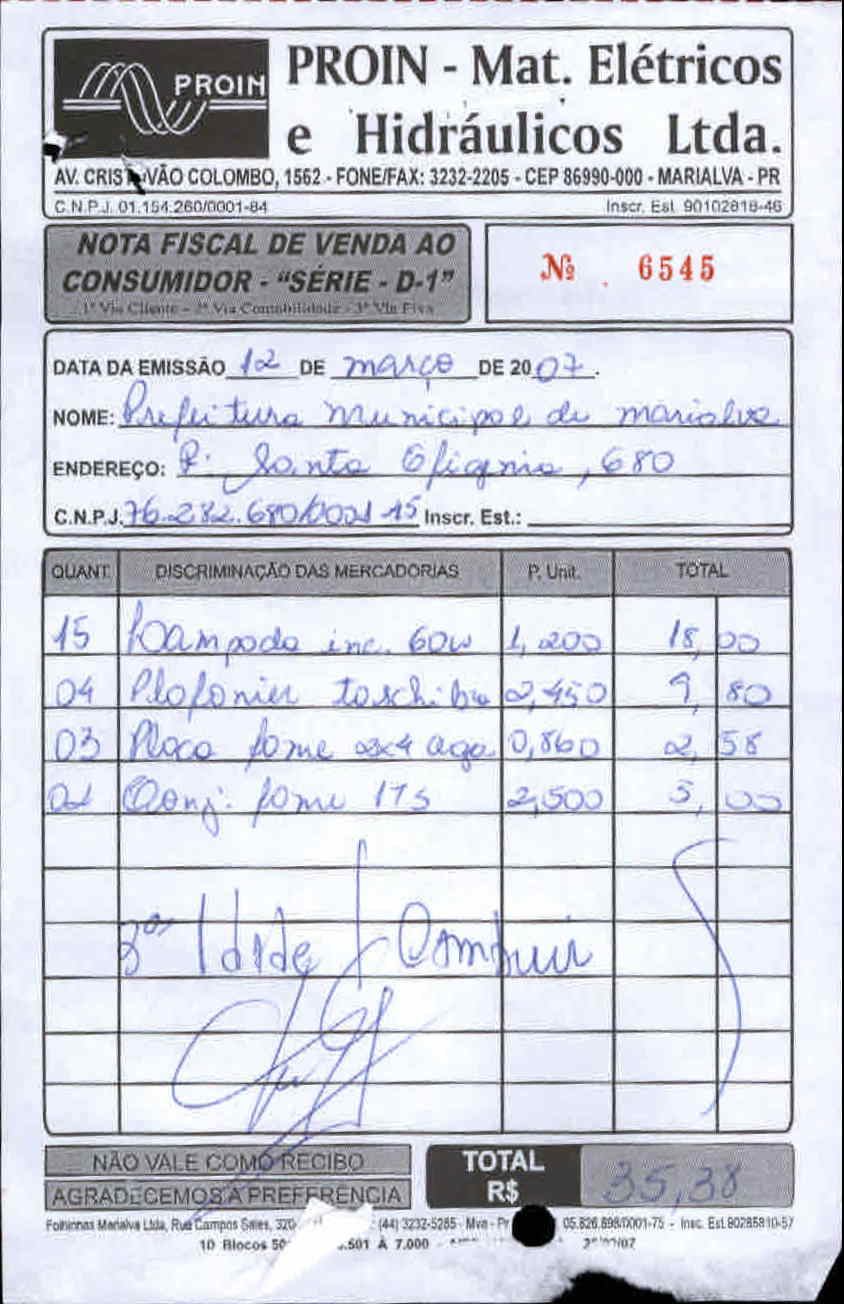 PROIN
PROIN - Mat. Elétricos
e Hidráulicos Ltda.
AV. CRIS VÃO COLOMBO, 1562 - FONE/FAX: 3232-2205 - CEP 86990-000 - MARIALVA - PR
C.N.P.J. 01.154.260/0001-84 Inscr. Est. 90102818-46
NOTA FISCAL DE VENDA AO
CONSUMIDOR - "SÉRIE - D-1"
1ª Via Cliente - 2ª Via Contabilidade - 3ª Via Fixa
Nº 6545
DATA DA EMISSÃO 12 DE março DE 2007.
NOME: Prefeitura municipal de marialva
ENDEREÇO: R: Santa Efigenia, 680
C.N.P.J. 76.282.680/0001 15 Inscr. Est.:
QUANT. DISCRIMINAÇÃO DAS MERCADORIAS P. Unit. TOTAL
15 inc. 60w 1,200 18,00
04 Plafonier 2,450 9,80
03 Placa fame 2x4 0,860 2,58
Conj. fame 175 2,500 5,00
3ª Idade
NÃO VALE COMO RECIBO
AGRADECEMOS A PREFERÊNCIA
TOTAL
R$ 35,38
Folhinhas Marialva Ltda, Rua Campos Sales, 320 (44) 3232-5265 - Mva - Pr 05.826.898/0001-75 - Insc. Est. 90285810-57
10 Blocos 50 .501 À 7.000